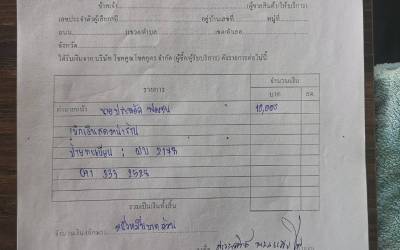 ข้าพเจ้า (ผู้ขายสินค้า/ให้บริการ)
เลขประจำตัวผู้เสียภาษี อยู่บ้านเลขที่ หมู่ที่
ถนน แขวง/ตำบล เขต/อำเภอ
จังหวัด
ได้รับเงินจาก บริษัท โชคคูณโชคคูตร จำกัด (ผู้ซื้อ/ผู้รับบริการ) ดังรายการต่อไปนี้
รายการ จำนวนเงิน
บาท สต.
10,000
เบิกเงินสดหน้าร้าน
ป้ายทะเบียน : ผบ 2178
091 333 2525
รวมเป็นเงินทั้งสิ้น
หนึ่งหมื่นบาทถ้วน